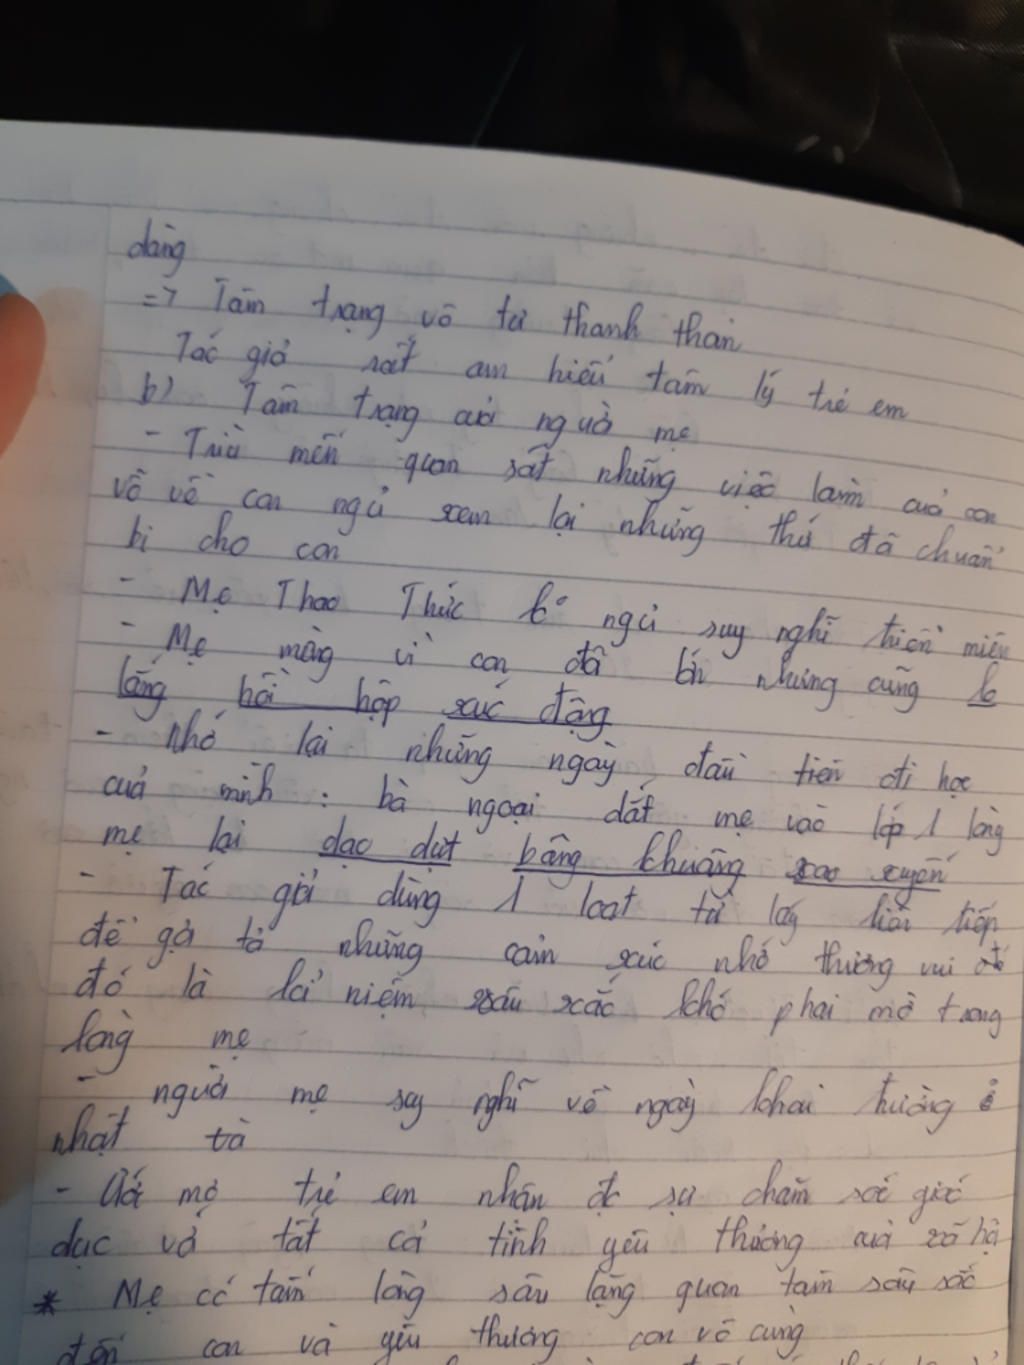 dàng
=> Tâm trạng vô tư thanh thản
Tác giả rất am hiểu tâm lý trẻ em
b) Tâm trạng của người mẹ
- Trìu mến quan sát những việc làm của con
vỗ về con ngủ xem lại những thứ đã chuẩn
bị cho con
- Mẹ Thao Thức ko ngủ suy nghĩ triền miên
- Mẹ mừng vì con đã lớn nhưng cũng lo
lắng hồi hộp xúc động
- Nhớ lại những ngày đầu tiên đi học
của mình : bà ngoại dắt mẹ vào lớp 1 lòng
mẹ lại dạo dựt bâng khuâng xao xuyến
- Tác giả dùng 1 loạt từ láy liên tiếp
để gợi tả những cảm xúc nhớ thương vui
đó là kỉ niệm sâu xắc khó phai mờ trong
lòng mẹ
- người mẹ suy nghĩ về ngày khai trường ở
nhật
- mơ trẻ em nhận đc sự chăm sóc giáo
dục và tất cả tình yêu thương của xã hội
* Mẹ có tấm lòng sâu lặng quan tâm sâu sắc
đến con và yêu thương con vô cùng